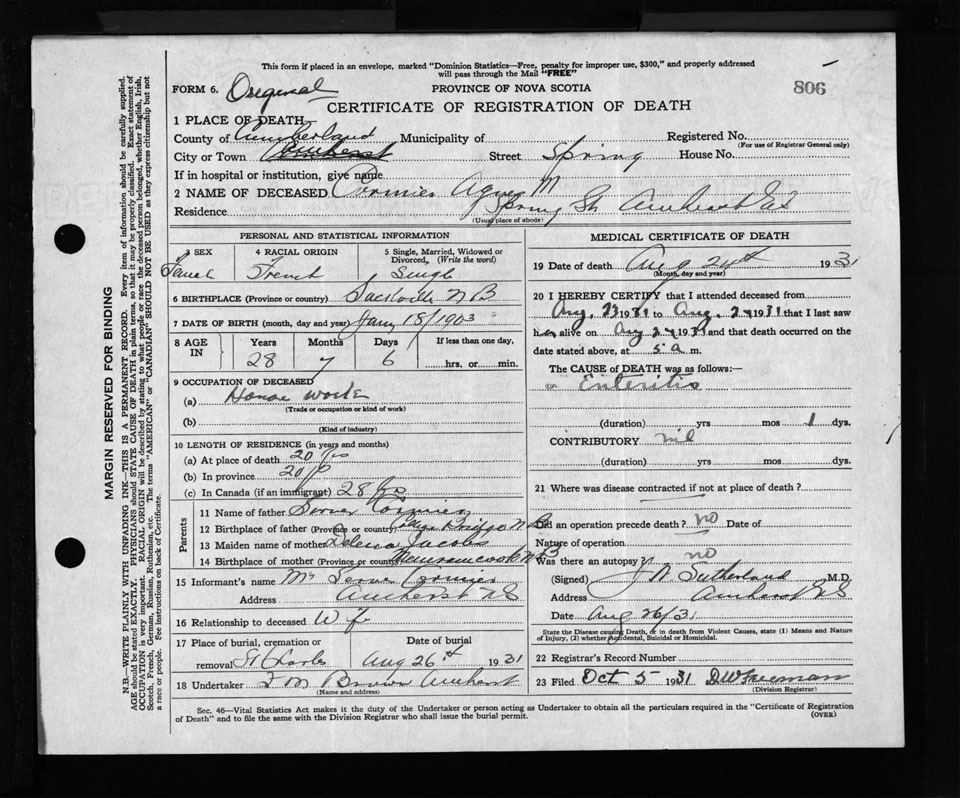 This form if placed in an envelope, marked "Dominion Statistics—Free, penalty for improper use, $300," and properly addressed
will pass through the Mail "FREE"
806
FORM 6. Original
PROVINCE OF NOVA SCOTIA
CERTIFICATE OF REGISTRATION OF DEATH
1 PLACE OF DEATH
County of Cumberland Municipality of Registered No.
(For use of Registrar General only)
City or Town Amherst Street Spring House No.
If in hospital or institution, give name
2 NAME OF DECEASED Cormier Agnes M
Residence Spring St Amherst NS
(Usual place of abode)
PERSONAL AND STATISTICAL INFORMATION
3 SEX
4 RACIAL ORIGIN French
5 Single, Married, Widowed or Divorced, (Write the word) Single
6 BIRTHPLACE (Province or country) Sackville N B
7 DATE OF BIRTH (month, day and year) Jany 18/1903
8 AGE IN Years Months Days If less than one day,
28 7 6 hrs. or min.
9 OCCUPATION OF DECEASED
(a) House work
(Trade or occupation or kind of work)
(b)
(Kind of industry)
10 LENGTH OF RESIDENCE (in years and months)
(a) At place of death 20 yrs
(b) In province 20 yrs
(c) In Canada (if an immigrant) 28 yrs
Parents
11 Name of father Cormier
12 Birthplace of father (Province or country) N B
13 Maiden name of mother Jacobs
14 Birthplace of mother (Province or country) Memramcook N B
15 Informant's name Mr Cormier
Address Amherst NS
16 Relationship to deceased
17 Place of burial, cremation or removal St Charles Date of burial Aug 26th 1931
18 Undertaker Brown Amherst
(Name and address)
MEDICAL CERTIFICATE OF DEATH
19 Date of death Aug 24th 1931
(Month, day and year)
20 I HEREBY CERTIFY that I attended deceased from
Aug. 23 1931 to Aug. 24 1931 that I last saw
her alive on Aug 24 1931 and that death occurred on the
date stated above, at 5 a m.
The CAUSE of DEATH was as follows:—
Enteritis
(duration) yrs mos 1 dys.
CONTRIBUTORY nil
(duration) yrs. mos. dys.
21 Where was disease contracted if not at place of death?
Did an operation precede death? no Date of
Nature of operation
Was there an autopsy? no
(Signed) J N Sutherland M.D.
Address Amherst NS
Date Aug 26/31
State the Disease causing Death, or in death from Violent Causes, state (1) Means and Nature
of Injury, (2) whether Accidental, Suicidal or Homicidal.
22 Registrar's Record Number
23 Filed Oct 5 1931 D W Freeman
(Division Registrar)
Sec. 46—Vital Statistics Act makes it the duty of the Undertaker or person acting as Undertaker to obtain all the particulars required in the "Certificate of Registration
of Death" and to file the same with the Division Registrar who shall issue the burial permit.
(OVER)
MARGIN RESERVED FOR BINDING
N.B.—WRITE PLAINLY WITH UNFADING INK—THIS IS A PERMANENT RECORD. Every item of information should be carefully supplied.
AGE should be stated EXACTLY. PHYSICIANS should STATE CAUSE OF DEATH in plain terms, so that it may be properly classified. Exact statement of
OCCUPATION is very important. RACIAL ORIGIN will be described by stating to what people or race the deceased person belonged, whether English, Irish,
Scotch, French, German, Russian, Ruthenian, etc. The terms "AMERICAN" or "CANADIAN" SHOULD NOT BE USED as they express citizenship but not
a race or people. See instructions on back of Certificate.